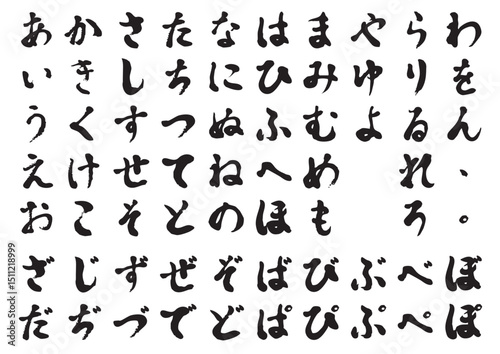 あかさたなはまやらわ
いきしちにひみゆりを
うくすつぬふむよるん
えけせてねへめ れ、
おこそとのほも ろ。
ざじずぜぞばびぶべぼ
だぢづでどぱぴぷぺぽ
Adobe Stock | #1511218999